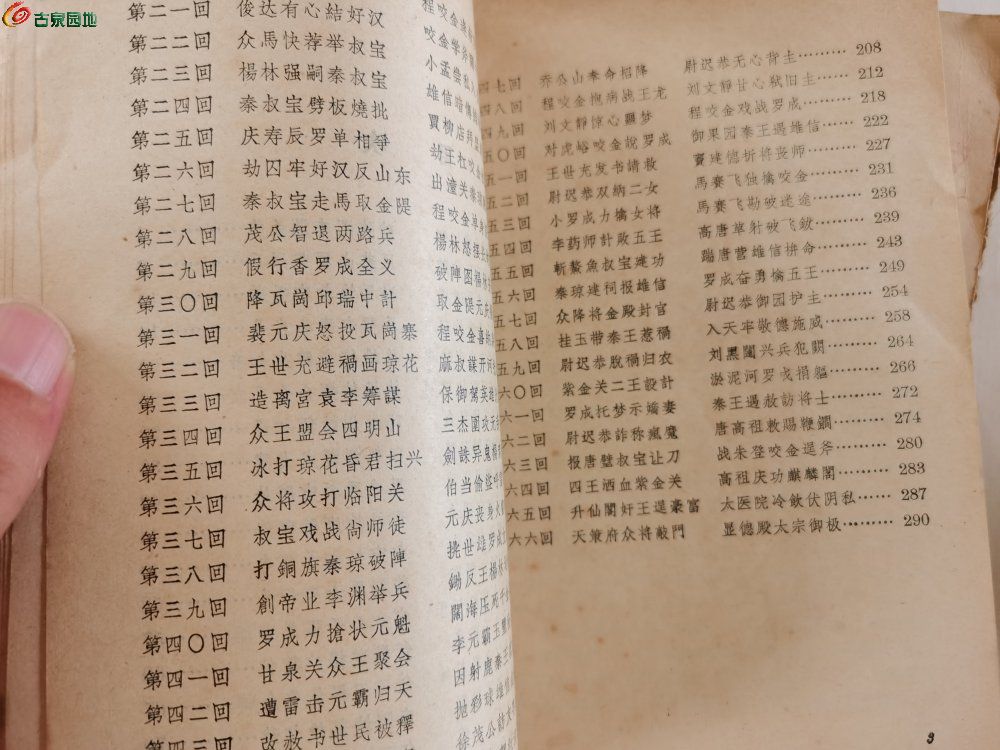 古泉园地
第二一回 俊达有心結好汉 程咬金
第二二回 众馬快荐举叔宝 咬金学斧
第二三回 楊林强嗣秦叔宝 小孟尝私入
第二四回 秦叔宝劈板燒批 雄信
第二五回 庆寿辰罗单相爭 賈柳店拜
第二六回 劫囚牢好汉反山东 劫王杠咬金
第二七回 秦叔宝走馬取金隄 出潼关秦
第二八回 茂公智退两路兵 程咬金
第二九回 假行香罗成全义 楊林怒
第三〇回 降瓦崗邱瑞中計 破陣图楊林
第三一回 裴元庆怒投瓦崗寨 取金隄元
第三二回 王世充避禍画琼花 程咬金喜
第三三回 造离宮袁李筹謀 麻叔謀开河
第三四回 众王盟会四明山 保御駕英雄
第三五回 冰打琼花昏君扫兴 三杰圍攻元
第三六回 众将攻打临阳关 劍誅异鬼
第三七回 叔宝戏战尙师徒 伯当偷盜
第三八回 打銅旗秦琼破陣 元庆丧身火
第三九回 創帝业李渊举兵 挑世雄罗成
第四〇回 罗成力搶状元魁 鋤反王楊林
第四一回 甘泉关众王聚会 闊海压死千
第四二回 遭雷击元霸归天 李元霸玉
第四三回 改赦书世民被釋 因射鹿秦王
抛彩球雄
徐茂公
四七回 乔公山奉命招降 尉迟恭无心背主………208
四八回 程咬金抱病战王龙 刘文靜甘心弑旧主……212
四九回 刘文靜惊心噩梦 程咬金戏战罗成………218
五〇回 对虎峪咬金說罗成 御果园秦王遇雄信……222
五一回 王世充发书請救 竇建德折将丧师………227
五二回 尉迟恭双納二女 馬賽飞独擒咬金………231
五三回 小罗成力擒女将 馬賽飞勘破迷途………236
五四回 李药师計敗五王 高唐草射破飞鈸………239
五五回 斬鰲魚叔宝建功 踹唐营雄信拚命………243
五六回 秦琼建祠报雄信 罗成奋勇擒五王………249
五七回 众降将金殿封官 尉迟恭御园护主………254
五八回 挂玉带秦王惹禍 入天牢敬德施威………258
五九回 尉迟恭脫禍归农 刘黑闥兴兵犯闕………264
六〇回 紫金关二王設計 淤泥河罗成捐軀………266
六一回 罗成托梦示嬌妻 秦王遇赦訪将士………272
六二回 尉迟恭詐称瘋魔 唐高祖敕賜鞭鐧………274
六三回 报唐璧叔宝让刀 战朱登咬金逞斧………280
六四回 四王洒血紫金关 高祖庆功麒麟閣………283
六五回 升仙閣奸王逞豪富 太医院冷飲伏阴私……287
六六回 天策府众将敲門 显德殿太宗御极………290
3